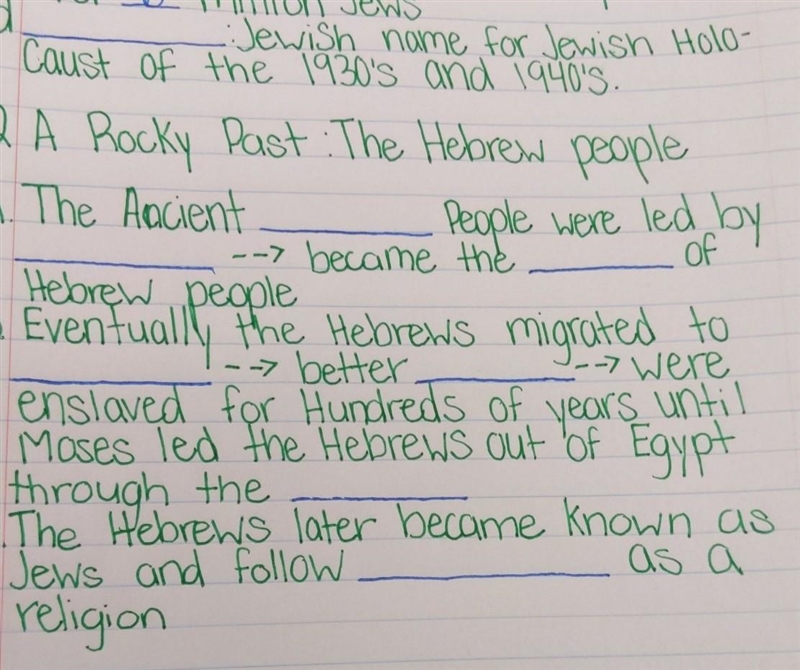 Million Jews
__________ : Jewish name for Jewish Holo-
caust of the 1930's and 1940's.
A Rocky Past : The Hebrew people
The Ancient __________ People were led by
__________ --> became the __________ of
Hebrew people
Eventually the Hebrews migrated to
__________ --> better __________ --> were
enslaved for Hundreds of years until
Moses led the Hebrews out of Egypt
through the __________
The Hebrews later became known as
Jews and follow __________ as a
religion